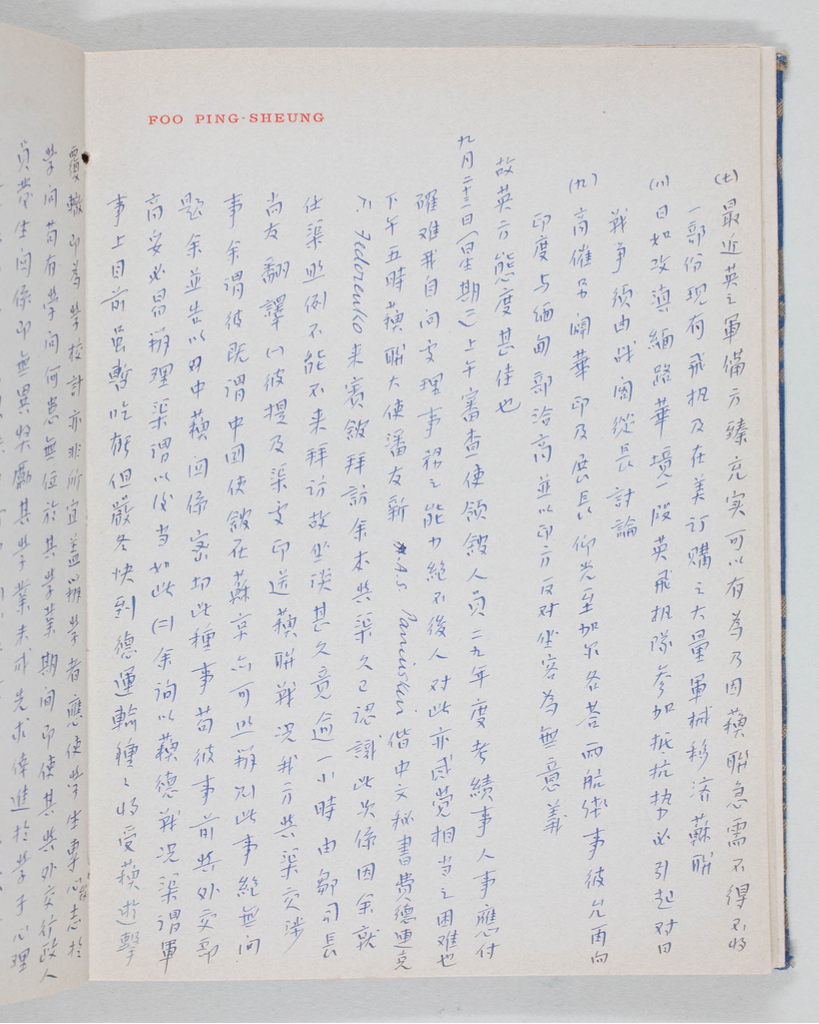 FOO PING-SHEUNG
(七)最近英之軍備方臻充实可以有為乃因蘓聯急需不得不將
一部份現有飛机及在美订購之大量軍械移济蘇聯
(八)日如攻滇緬路華境一段英飛机隊参加抵抗势必引起对日
戰争须由战閣從長討論
(九)高催另闢華印及展長仰光至加尔各荅両航缐事彼允再向
印度与緬甸部洽商並以印方反对坐客為無意義
故英方態度甚佳也
九月二十三日(星期二)上午審查使領館人員二九年度考績事人事應付
確难我自问处理事務之能力絕不後人对此亦感覚相当之困难也
下午五時蘓聯大使潘友新 A.S. Paniushkin 偕中文秘書費德連克
N. Fedorenko 来賓館拜訪余本與渠久已認識此次係因余就
任渠照例不能不来拜访故坐谈甚久竟逾一小時由鄒司長
尚友翻譯(一)彼提及渠处印送蘓聯戰况我方與渠交涉
事余谓彼既谓中国使館在蘇京亦可照辦则此事絕無问
题余並告以因中蘓関係密切此種事苟彼事前與外交部
商妥必易辦理渠谓以後当如此(二)余询以蘓德戰况渠谓軍
事上目前虽暫吃虧但嚴冬快到德運輸種々將受蘓逰擊
覆轍即為学校計亦非所宜盖辦学者應使学生專心志於
学问苟有学问何患無位於其学業期间即使其與外交行政人
員發生関係即無異奨勵其学業未成先求倖進於学子心理